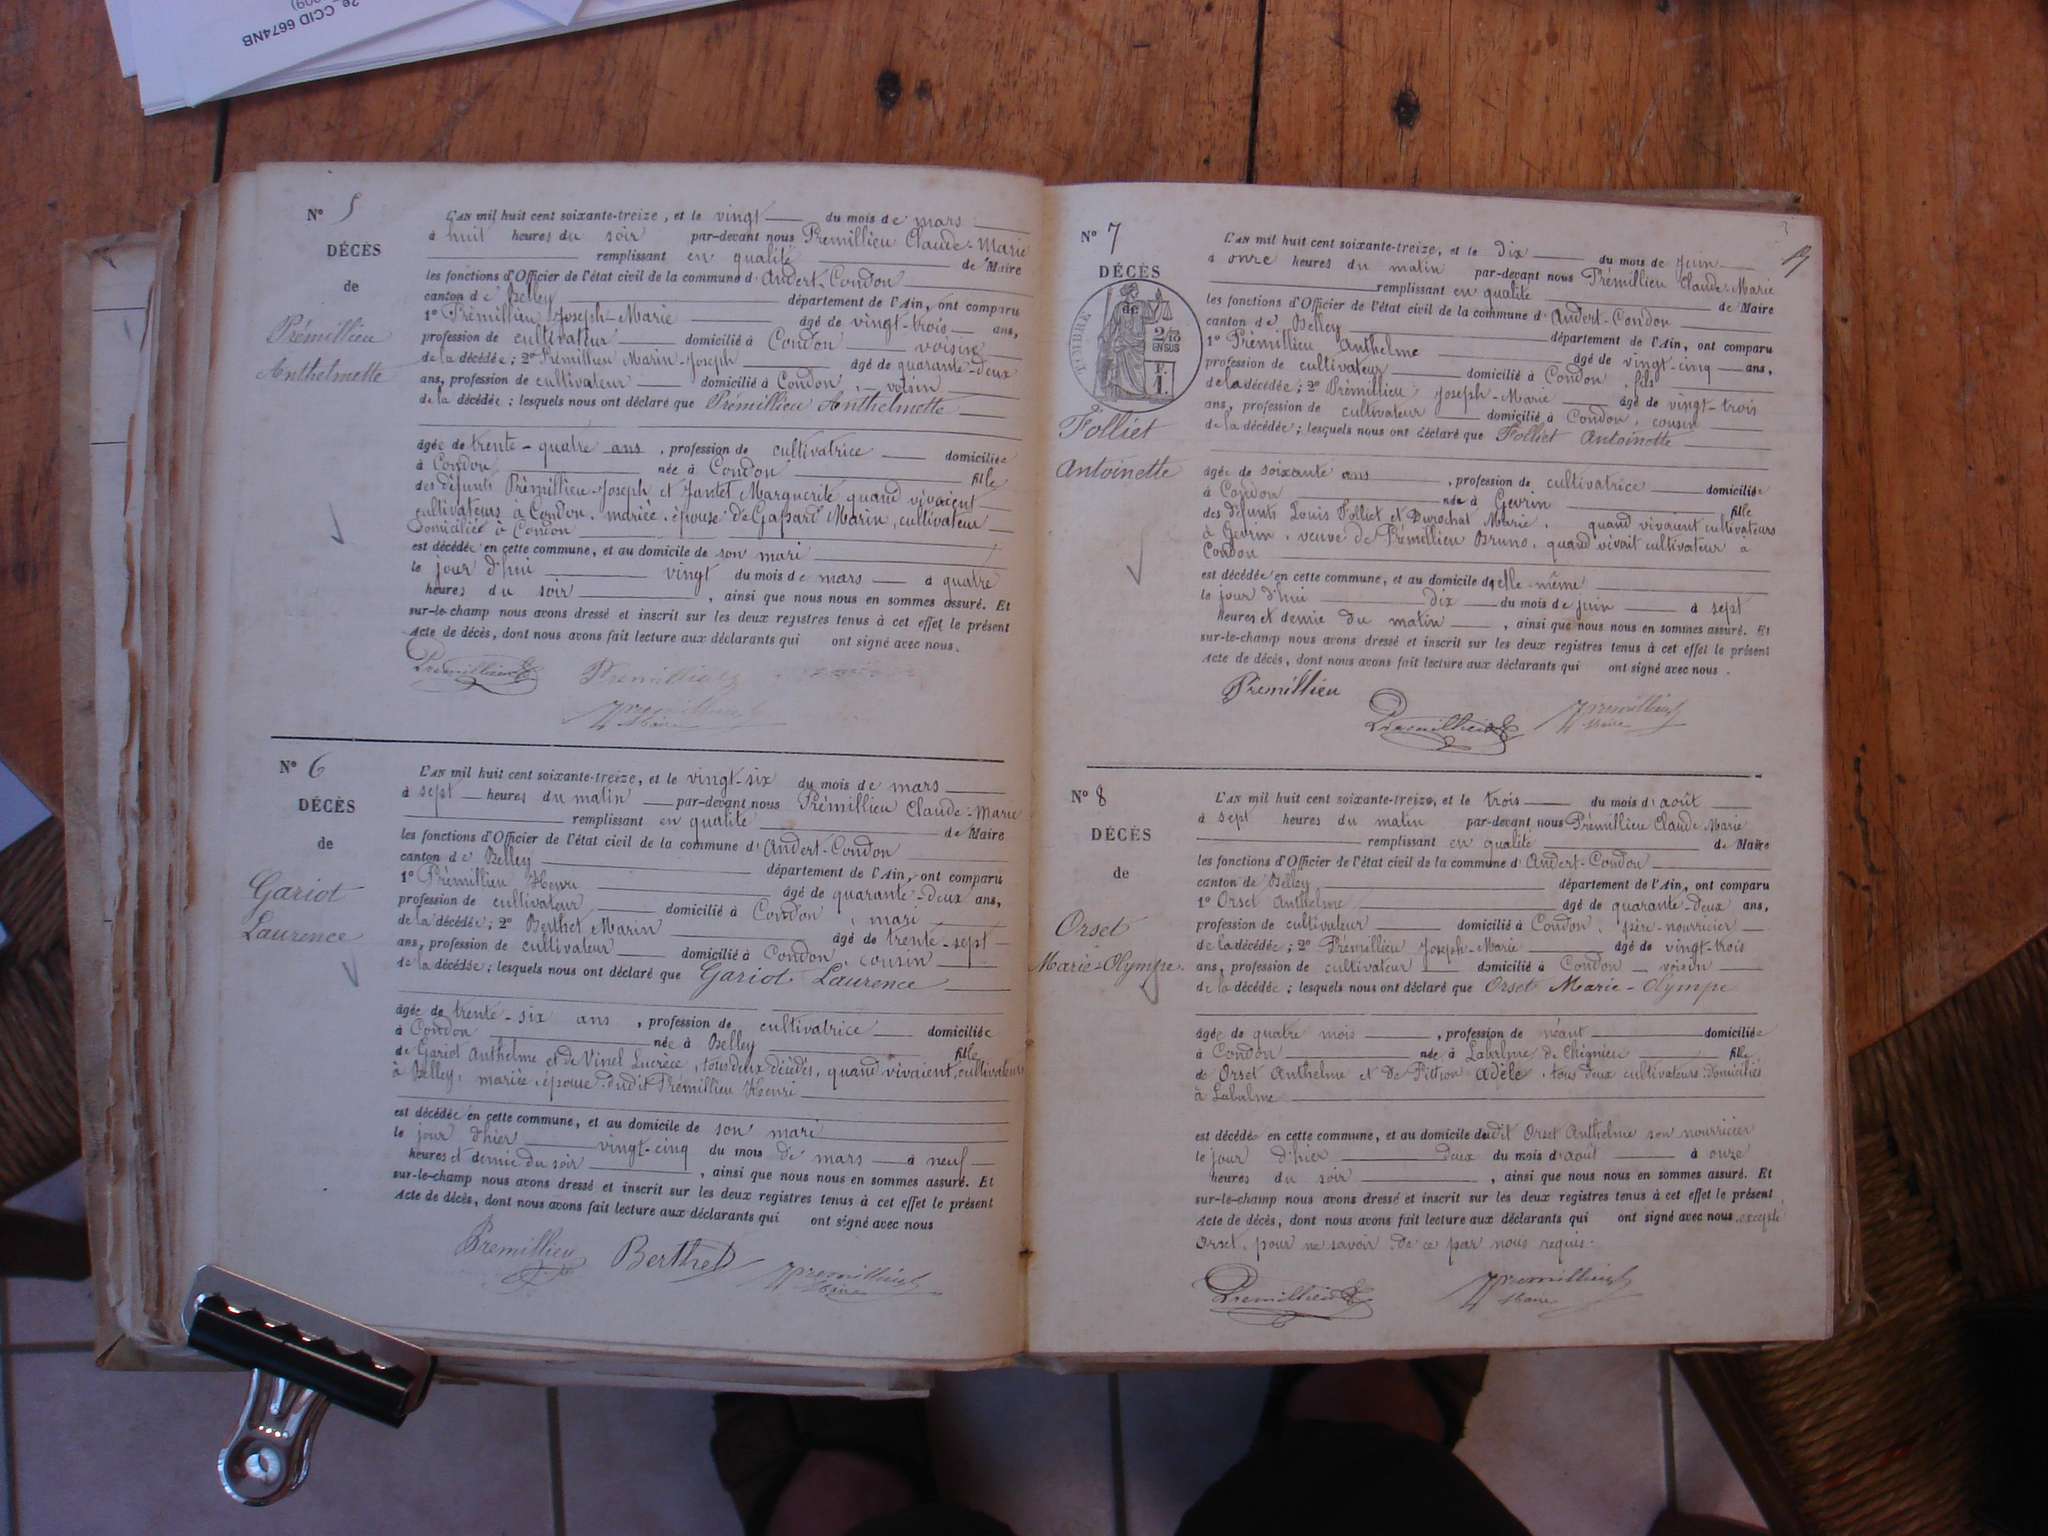 2e. CCID 6674NB
N° 5
DÉCÈS
de
Prémillieu
Anthelmette
L'AN mil huit cent soixante-treize, et le vingt du mois de mars
à huit heures du soir par-devant nous Prémillieu Claude-Marie
remplissant en qualité de Maire
les fonctions d'Officier de l'état civil de la commune d'Andert-Condon
canton de Belley département de l'Ain, ont comparu
1° Prémillieu Joseph-Marie âgé de vingt-trois ans,
profession de cultivateur domicilié à Condon voisin
de la décédée; 2° Prémillieu Marin-Joseph âgé de quarante-deux
ans, profession de cultivateur domicilié à Condon, voisin
de la décédée; lesquels nous ont déclaré que Prémillieu Anthelmette
âgée de trente-quatre ans, profession de cultivatrice domiciliée
à Condon née à Condon fille
des défunts Prémillieu Joseph et Jantet Marguerite quand vivaient
cultivateurs à Condon, mariée, épouse de Gaspard Marin, cultivateur
domiciliée à Condon
est décédée en cette commune, et au domicile de son mari
le jour d'hui vingt du mois de mars à quatre
heures du soir, ainsi que nous nous en sommes assuré. Et
sur-le-champ nous avons dressé et inscrit sur les deux registres tenus à cet effet le présent
Acte de décès, dont nous avons fait lecture aux déclarants qui ont signé avec nous.
Premillieu Premillieu
Premillieu
Maire
N° 6
DÉCÈS
de
Gariot
Laurence
L'AN mil huit cent soixante-treize, et le vingt-six du mois de mars
à sept heures du matin par-devant nous Prémillieu Claude-Marie
remplissant en qualité de Maire
les fonctions d'Officier de l'état civil de la commune d'Andert-Condon
canton de Belley département de l'Ain, ont comparu
1° Prémillieu Henri âgé de quarante-deux ans,
profession de cultivateur domicilié à Condon, mari
de la décédée; 2° Berthet Marin âgé de trente-sept
ans, profession de cultivateur domicilié à Condon, cousin
de la décédée; lesquels nous ont déclaré que Gariot Laurence
âgée de trente-six ans, profession de cultivatrice domiciliée
à Condon née à Belley fille
de Gariot Anthelme et de Vinel Lucrèce, tous deux décédés, quand vivaient, cultivateurs
à Belley, mariée, épouse dudit Prémillieu Henri
est décédée en cette commune, et au domicile de son mari
le jour d'hier vingt-cinq du mois de mars à neuf
heures et demie du soir, ainsi que nous nous en sommes assuré. Et
sur-le-champ nous avons dressé et inscrit sur les deux registres tenus à cet effet le présent
Acte de décès, dont nous avons fait lecture aux déclarants qui ont signé avec nous
Premillieu Berthet Premillieu
Maire
N° 7
DÉCÈS
de
TIMBRE
2/10
EN SUS
F.
1.
Folliet
Antoinette
L'AN mil huit cent soixante-treize, et le dix du mois de juin
à onze heures du matin par-devant nous Prémillieu Claude-Marie
remplissant en qualité de Maire
les fonctions d'Officier de l'état civil de la commune d'Andert-Condon
canton de Belley département de l'Ain, ont comparu
1° Prémillieu Anthelme âgé de vingt-cinq ans,
profession de cultivateur domicilié à Condon, fils
de la décédée; 2° Prémillieu Joseph-Marie âgé de vingt-trois
ans, profession de cultivateur domicilié à Condon, cousin
de la décédée; lesquels nous ont déclaré que Folliet Antoinette
âgée de soixante ans, profession de cultivatrice domiciliée
à Condon née à Gevrin fille
des défunts Louis Folliet et Durochat Marie, quand vivaient cultivateurs
à Gevrin, veuve de Prémillieu Bruno, quand vivait cultivateur à
Condon
est décédée en cette commune, et au domicile d'elle-même
le jour d'hui dix du mois de juin à sept
heures et demie du matin, ainsi que nous nous en sommes assuré. Et
sur-le-champ nous avons dressé et inscrit sur les deux registres tenus à cet effet le présent
Acte de décès, dont nous avons fait lecture aux déclarants qui ont signé avec nous.
Premillieu Premillieu Premillieu
Maire
N° 8
DÉCÈS
de
Orset
Marie-Olympe
L'AN mil huit cent soixante-treize, et le trois du mois d'août
à sept heures du matin par-devant nous Prémillieu Claude Marie
remplissant en qualité de Maire
les fonctions d'Officier de l'état civil de la commune d'Andert-Condon
canton de Belley département de l'Ain, ont comparu
1° Orset Anthelme âgé de quarante-deux ans,
profession de cultivateur domicilié à Condon, père-nourricier
de la décédée; 2° Prémillieu Joseph-Marie âgé de vingt-trois
ans, profession de cultivateur domicilié à Condon voisin
de la décédée; lesquels nous ont déclaré que Orset Marie-Olympe
âgée de quatre mois, profession de néant domiciliée
à Condon née à Labalme de Chignieu fille
de Orset Anthelme et de Pittion Adèle, tous deux cultivateurs domiciliés
à Labalme
est décédée en cette commune, et au domicile dudit Orset Anthelme son nourricier
le jour d'hier deux du mois d'août à onze
heures du soir, ainsi que nous nous en sommes assuré. Et
sur-le-champ nous avons dressé et inscrit sur les deux registres tenus à cet effet le présent
Acte de décès, dont nous avons fait lecture aux déclarants qui ont signé avec nous excepté
Orset, pour ne savoir de ce par nous requis.
Premillieu Premillieu
Maire